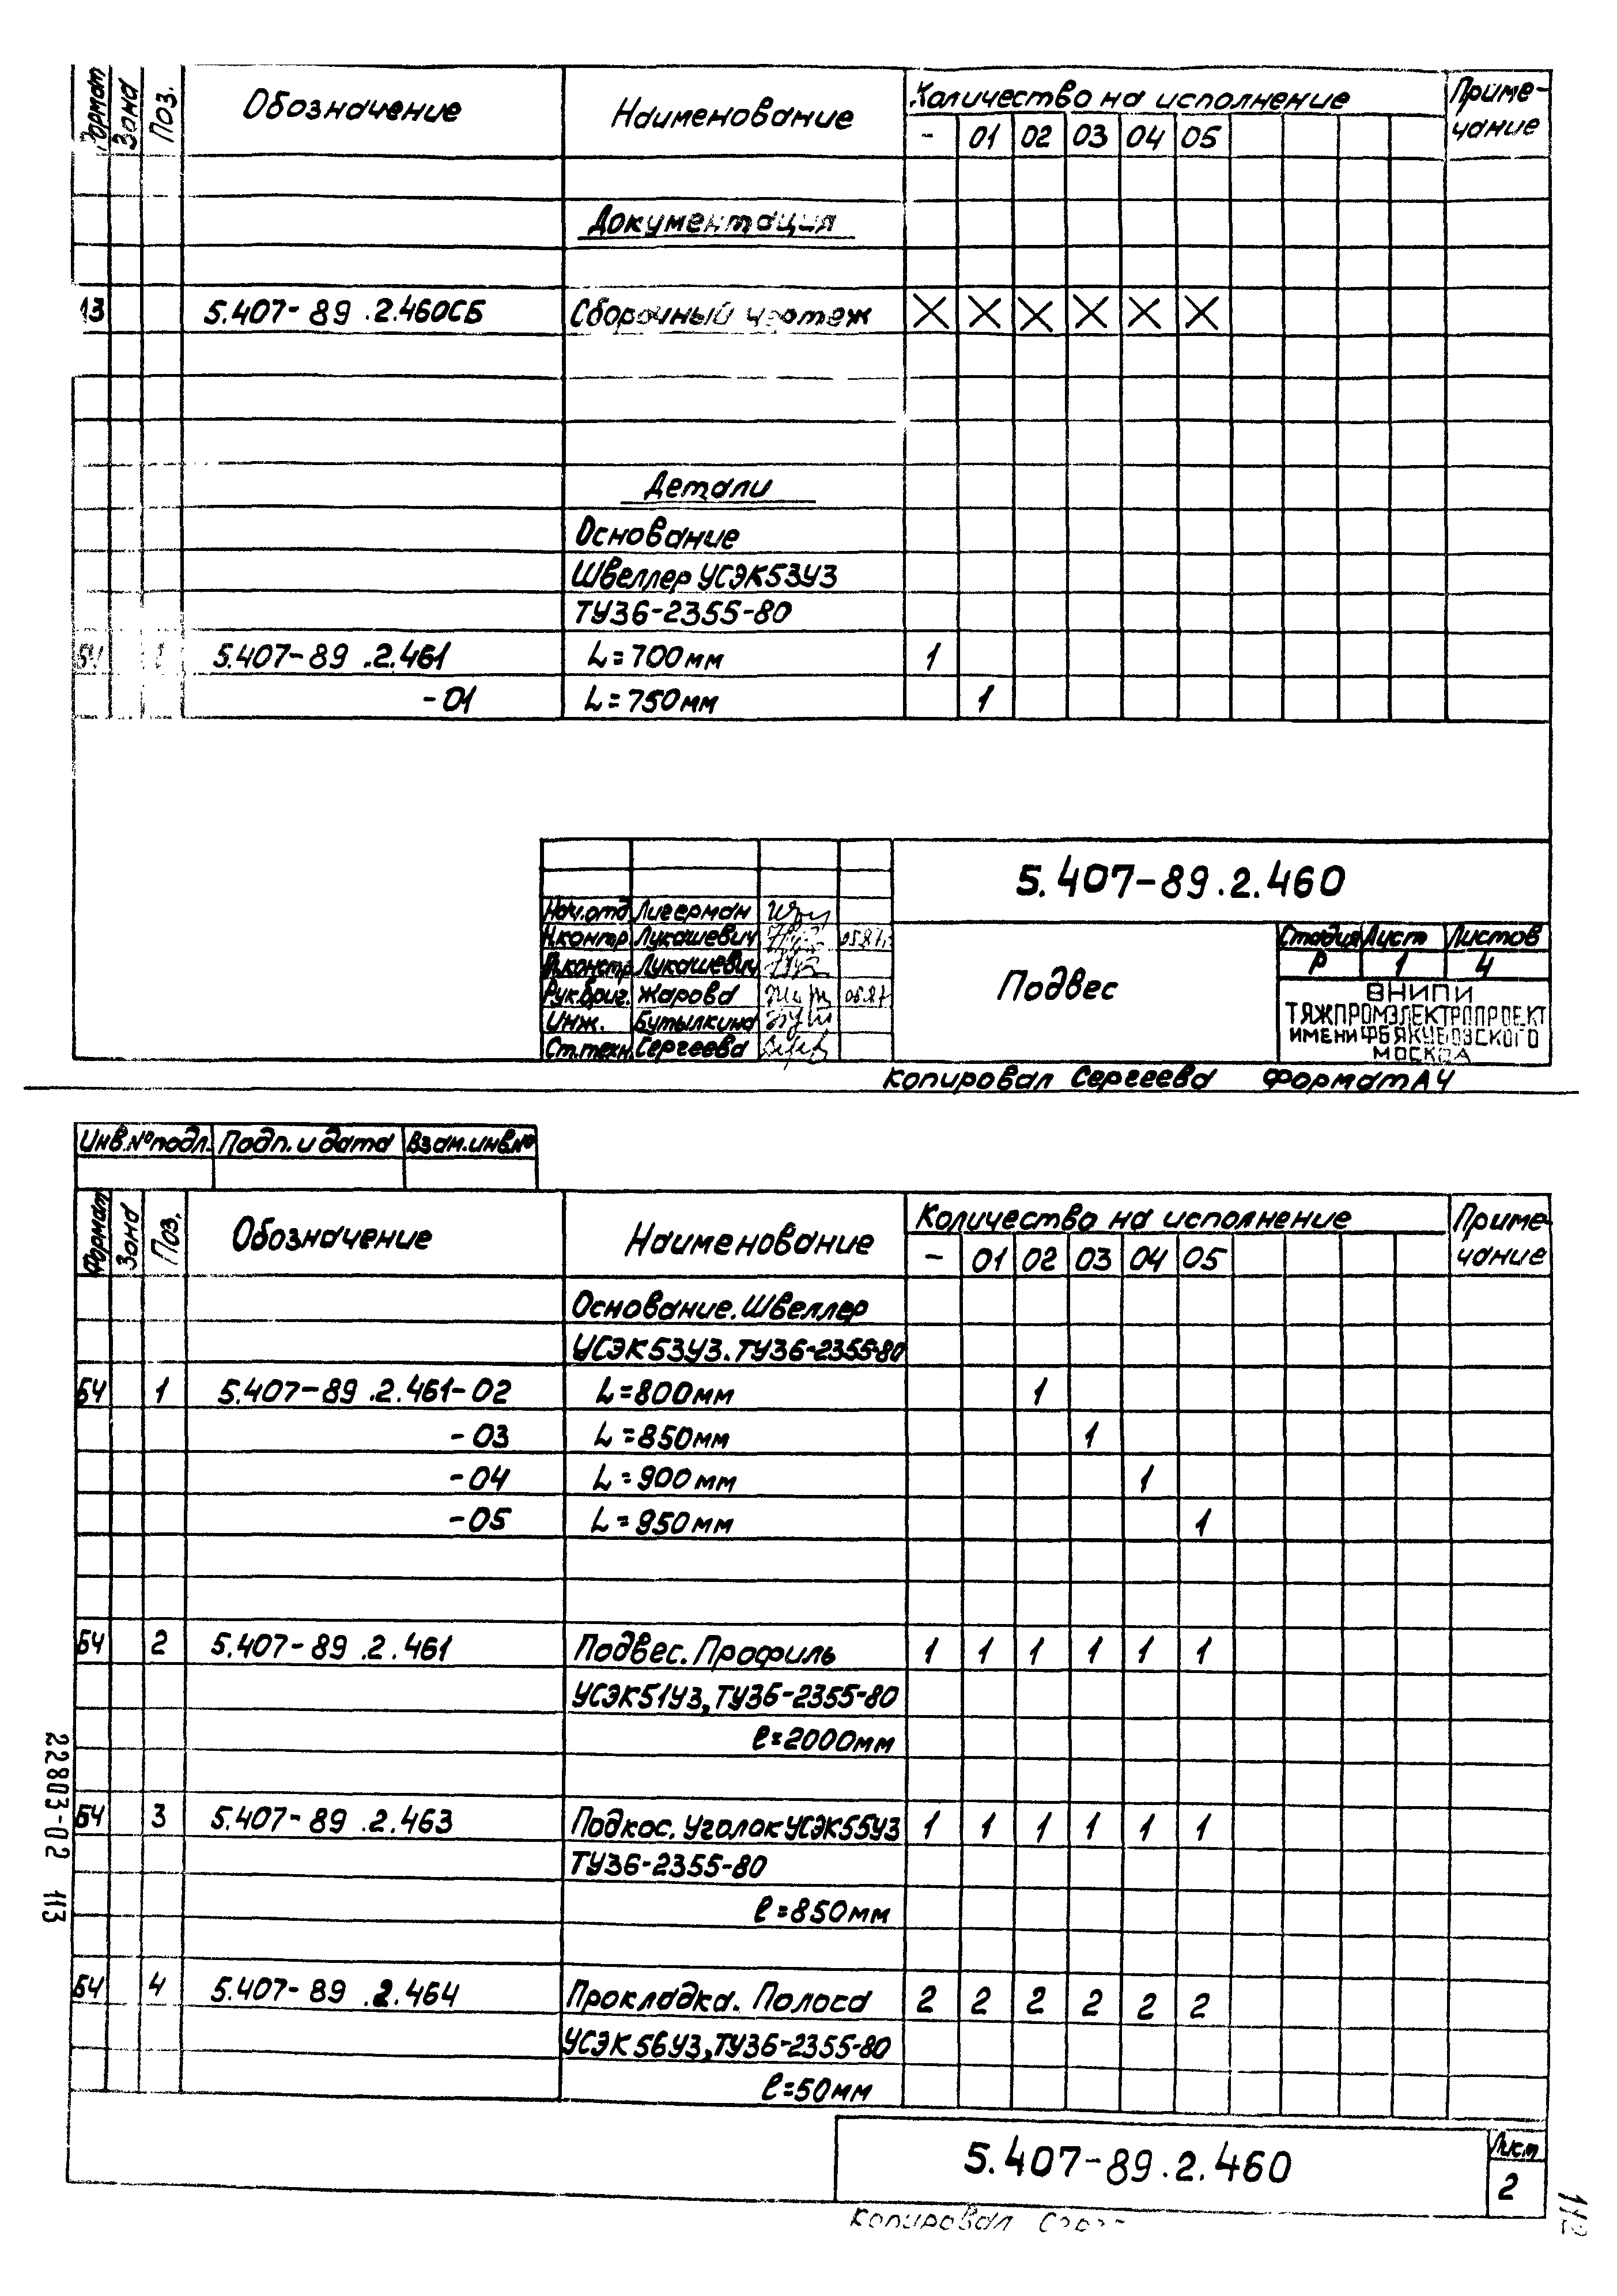 Формат Зона Поз. Обозначение Наименование Количество на исполнение Приме-чание
- 01 02 03 04 05
Документация
А3 5.407-89.2.460СБ Сборочный чертеж X X X X X X
Детали
Основание
Швеллер УСЭК53У3
ТУ36-2355-80
БЧ 1 5.407-89.2.461 L=700мм 1
-01 L=750мм 1
5.407-89.2.460
Нач.отд. Лигерман
Н.контр. Лукашевич 05.87г.
Лукашевич
Рук.бриг. Жарова 05.87
Инж. Бутылкина
Ст.техн. Сергеева
Подвес
Стадия Лист Листов
Р 1 4
ВНИПИ
ТЯЖПРОМЭЛЕКТРОПРОЕКТ
ИМЕНИ Ф.Б.ЯКУБОВСКОГО
МОСКВА
Копировал Сергеева Формат А4
Инв.№ подл. Подп. и дата Взам.инв.№
Формат Зона Поз. Обозначение Наименование Количество на исполнение Приме-чание
- 01 02 03 04 05
Основание. Швеллер
УСЭК53У3. ТУ36-2355-80
БЧ 1 5.407-89.2.461-02 L=800мм 1
-03 L=850мм 1
-04 L=900мм 1
-05 L=950мм 1
БЧ 2 5.407-89.2.461 Подвес. Профиль 1 1 1 1 1 1
УСЭК51У3, ТУ36-2355-80
ℓ=2000мм
БЧ 3 5.407-89.2.463 Подкос. Уголок УСЭК55У3 1 1 1 1 1 1
ТУ36-2355-80
ℓ=850мм
БЧ 4 5.407-89.2.464 Прокладка. Полоса 2 2 2 2 2 2
УСЭК56У3, ТУ36-2355-80
ℓ=50мм
5.407-89.2.460
Лист
2
Копировал
22803-02 113
112